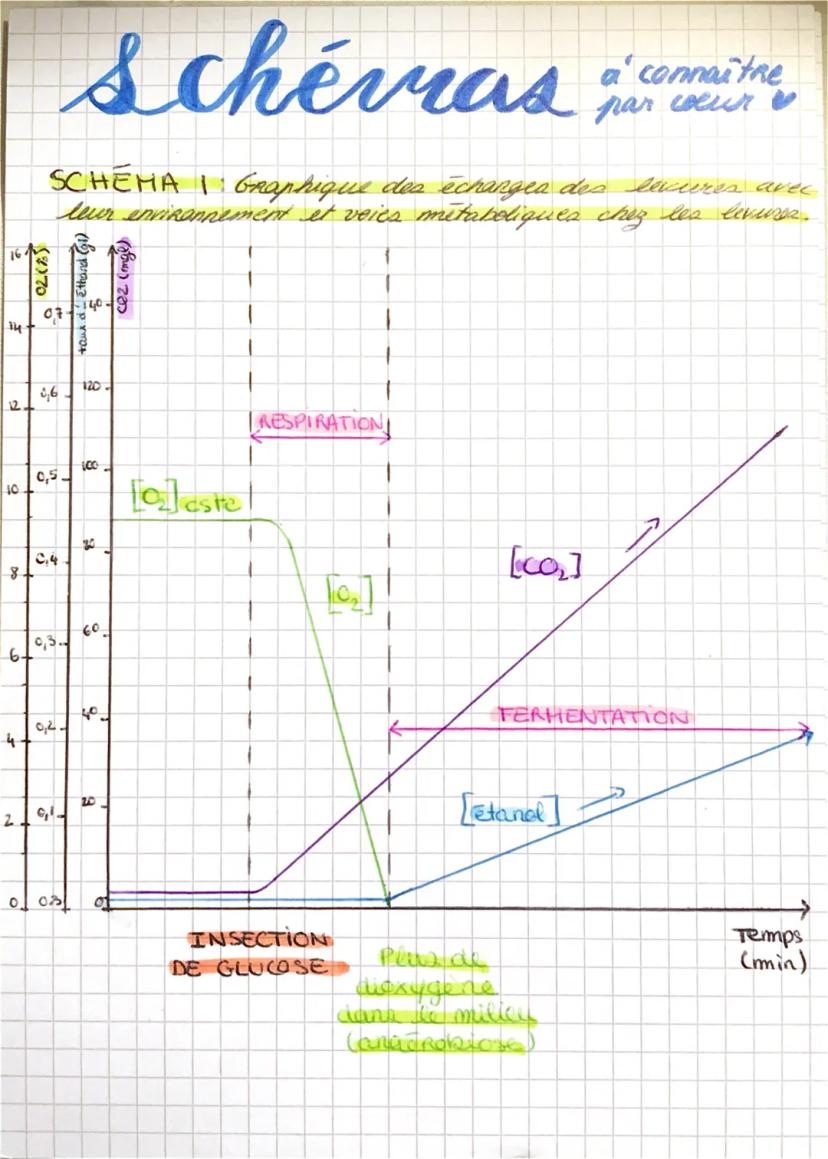 Schémas
à connaître
par coeur
SCHÉMA 1 : Graphique des échanges des levures avec
leur environnement et voies métaboliques chez les levures.
O2 (%)
taux d'éthanol (g/l)
CO2 (mg/l)
16
14
12
10
8
6
4
2
0
0,7
0,6
0,5
0,4
0,3
0,2
0,1
40
120
100
80
60
40
20
0
RESPIRATION
[O₂] cste
[O₂]
[CO₂]
FERMENTATION
[étanol]
Temps
(min)
INSECTION
DE GLUCOSE
Plus de
dioxygène
dans le milieu
(anaérobiose)